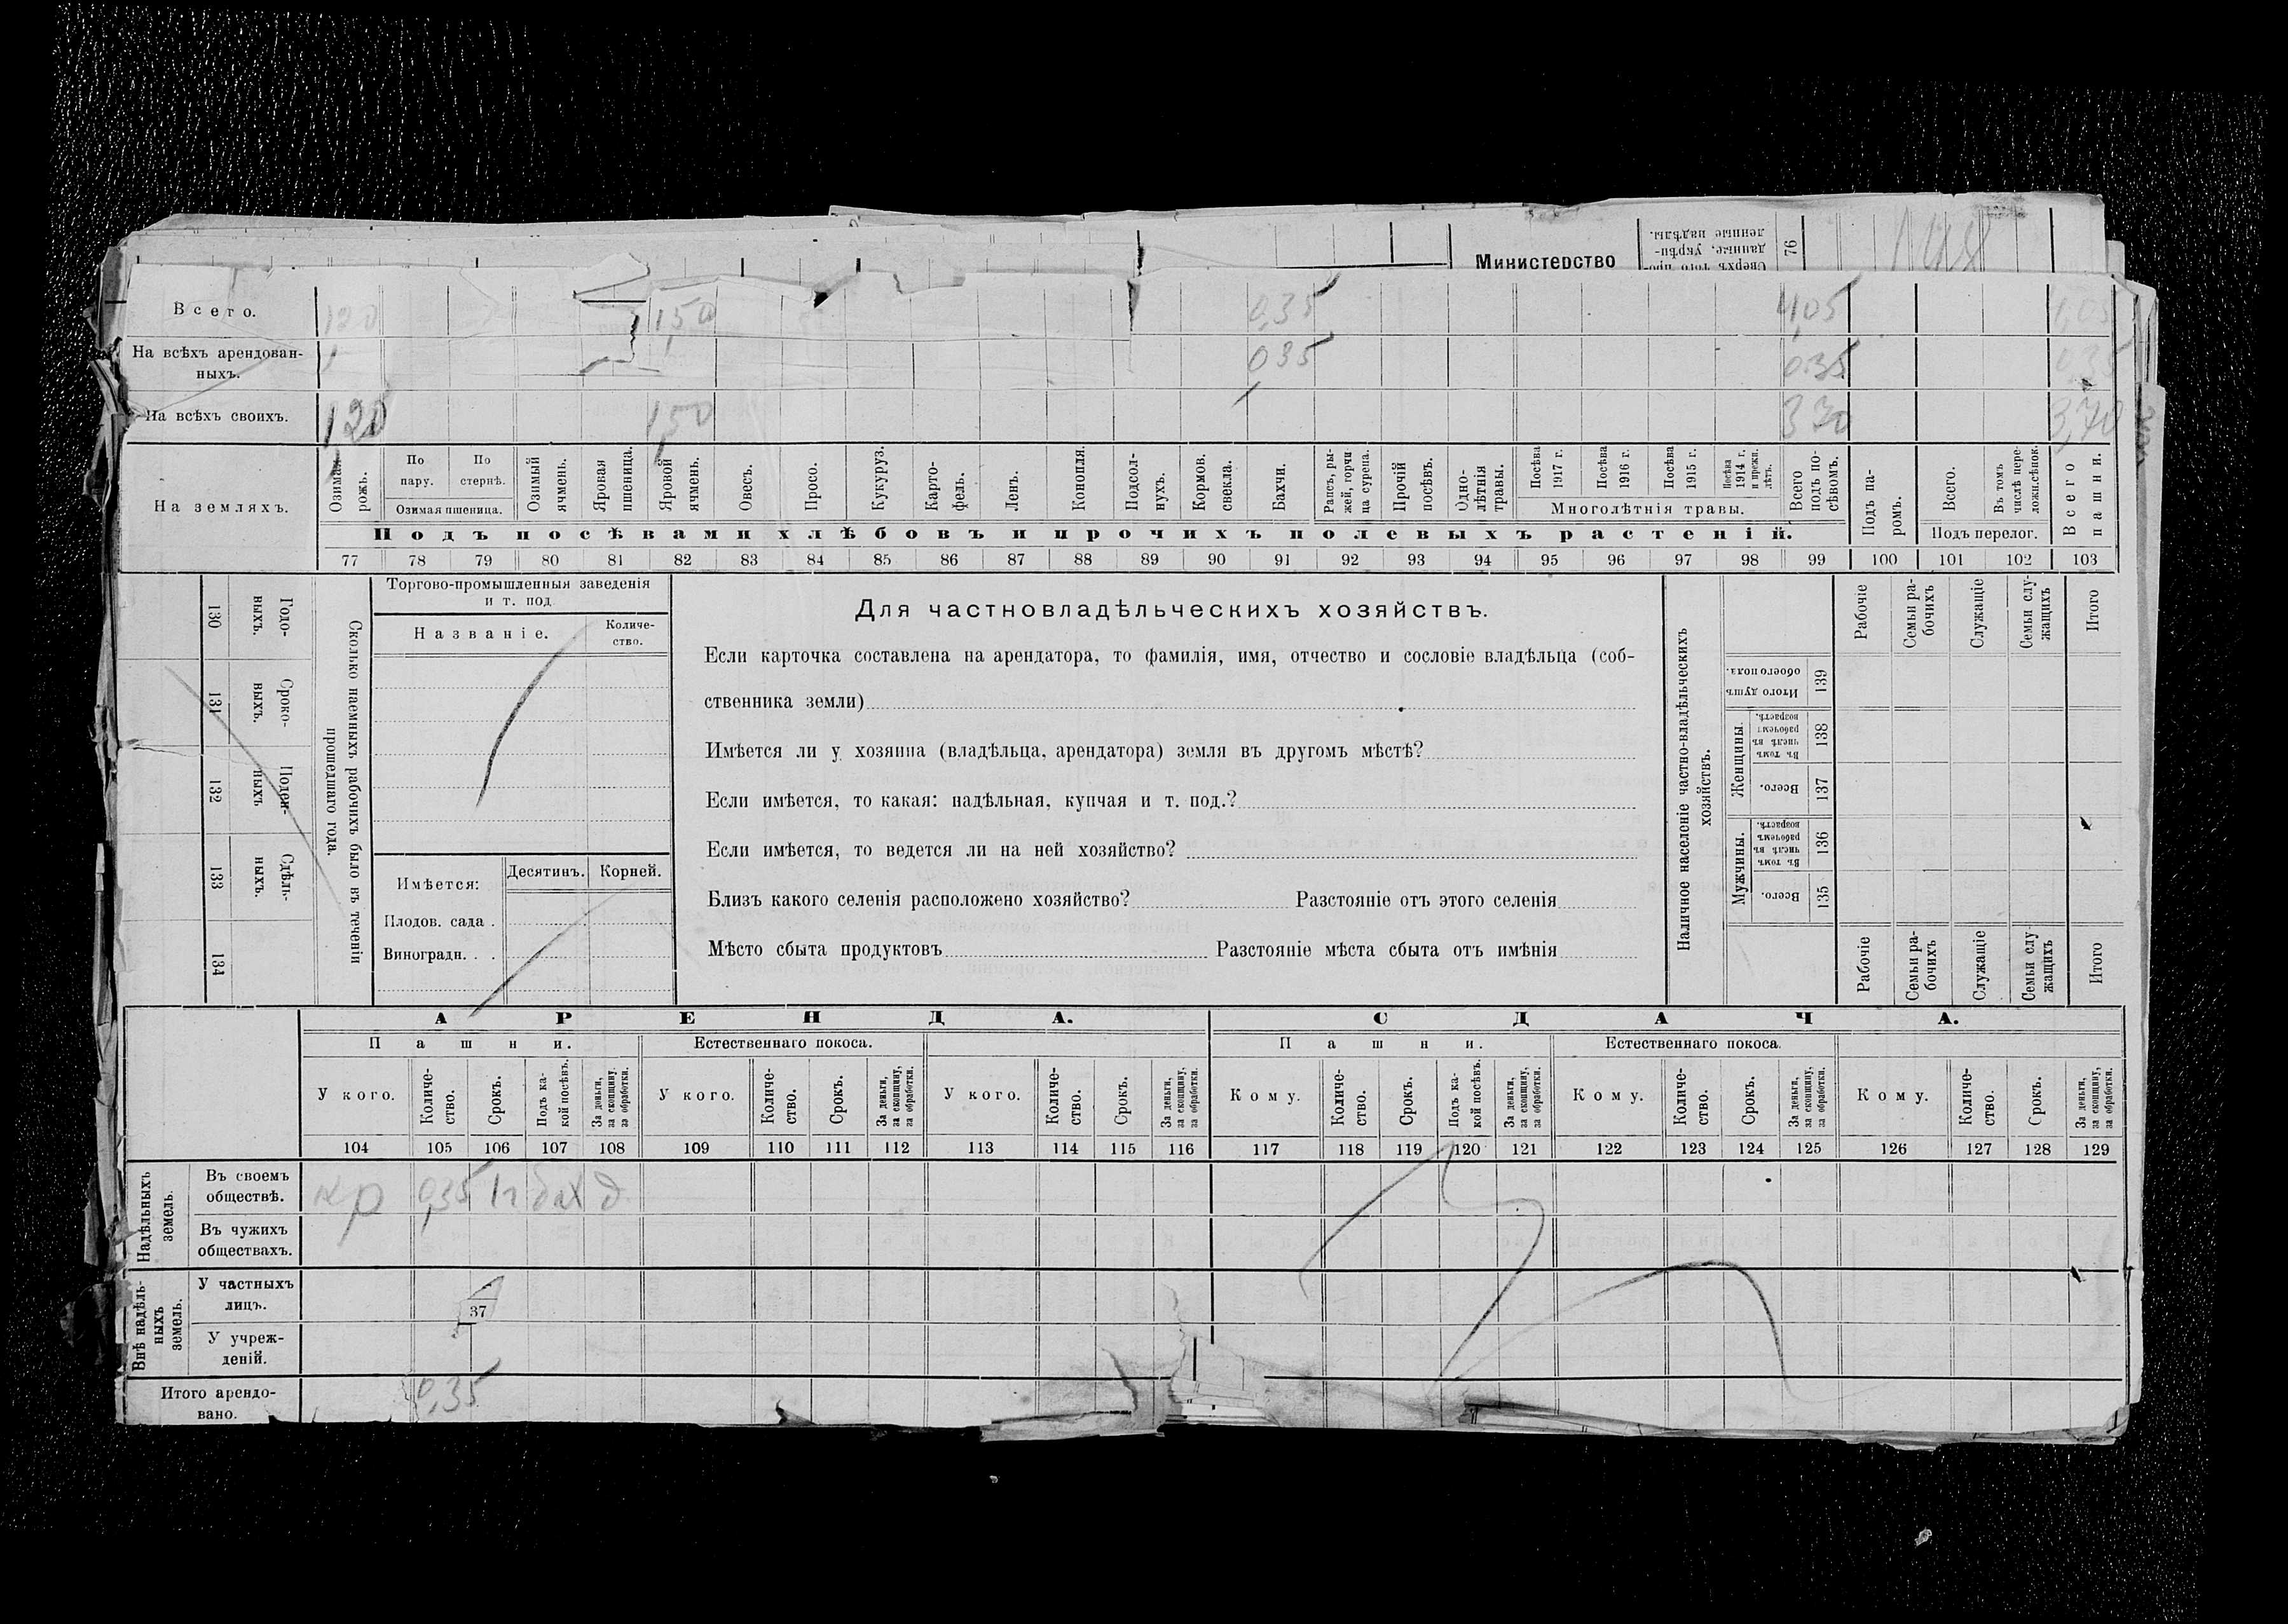 Министерство
Сверхъ того про-
данные, укрѣп-
ленные надѣлы.
76
Всего.
1,20
1,50
0,35
4,05
4,05
На всѣхъ арендован-
ныхъ.
035
0.35
0,35
На всѣхъ своихъ.
1,20
1,50
3,70
На земляхъ.
Озимая рожь.
По пару.
По стернѣ.
Озимая пшеница.
Озимый ячмень.
Яровая пшеница.
Яровой ячмень.
Овесъ.
Просо.
Кукуруз.
Карто-
фель.
Ленъ.
Конопля.
Подсол-
нухъ.
Кормов. свекла.
Бахчи.
Рапсъ, ры-
жей, горчи
ца сурепа.
Прочій посѣвъ.
Одно-
лѣтнія
травы.
Посѣва 1917 г.
Посѣва 1916 г.
Посѣва 1915 г.
Посѣва 1914 г. и прежн. лѣтъ.
Многолѣтнія травы.
Всего подъ по-
сѣвомъ.
Подъ посѣвами хлѣбовъ и прочихъ полевыхъ растеній.
Подъ па-
ромъ.
Всего.
Въ томъ числѣ пере-
ложн.сѣнок.
Подъ перелог.
Всего пашни.
77 78 79 80 81 82 83 84 85 86 87 88 89 90 91 92 93 94 95 96 97 98 99 100 101 102 103
130 Годо-
ныхъ.
131 Сроко-
ныхъ.
132 Поден-
ныхъ
133 Сдѣль-
ныхъ.
134
Сколько наемныхъ рабочихъ было въ теченіи
прошедшаго года.
Торгово-промышленныя заведенія
и т. под
Названіе.
Количе-
ство.
Имѣется:
Десятинъ.
Корней.
Плодов. сада .
Виноградн. . .
Для частновладѣльческихъ хозяйствъ.
Если карточка составлена на арендатора, то фамилія, имя, отчество и сословіе владѣльца (соб-
ственника земли)
Имѣется ли у хозяина (владѣльца, арендатора) земля въ другомъ мѣстѣ?
Если имѣется, то какая: надѣльная, купчая и т. под.?
Если имѣется, то ведется ли на ней хозяйство?
Близъ какого селенія расположено хозяйство? Разстояніе отъ этого селенія
Мѣсто сбыта продуктовъ Разстояніе мѣста сбыта отъ имѣнія
Наличное населеніе частно-владѣльческихъ
хозяйствъ.
Рабочіе
Семьи ра-
бочихъ
Служащіе
Семьи слу-
жащихъ
Итого
Итого душъ обоего пола.
139
Женщины
Въ томъ числѣ въ рабочемъ возрастѣ.
138
Всего.
137
Мужчины.
Въ томъ числѣ въ рабочемъ возрастѣ.
136
Всего.
135
Рабочіе
Семьи ра-
бочихъ
Служащіе
Семьи слу-
жащихъ
Итого
АРЕНДА.
СДАЧА.
Пашни.
Естественнаго покоса.
Пашни.
Естественнаго покоса.
У кого.
Количе-
ство.
Срокъ.
Подъ ка-
кой посѣвъ.
За деньги, за скопщину, за обработки.
У кого.
Количе-
ство.
Срокъ.
За деньги, за скопщину, за обработки.
У кого.
Количе-
ство.
Срокъ.
За деньги, за скопщину, за обработки.
Кому.
Количе-
ство.
Срокъ.
Подъ ка-
кой посѣвъ.
За деньги, за скопщину, за обработки.
Кому.
Количе-
ство.
Срокъ.
За деньги, за скопщину, за обработки.
Кому.
Количе-
ство.
Срокъ.
За деньги, за скопщину, за обработки.
104 105 106 107 108 109 110 111 112 113 114 115 116 117 118 119 120 121 122 123 124 125 126 127 128 129
Надѣльныхъ
земель.
Въ своемъ
обществѣ.
кр 0,35 1г бах д
Въ чужихъ
обществахъ.
Внѣ надѣль-
ныхъ
земель.
У частныхъ
лицъ.
37
У учреж-
деній.
Итого арендо-
вано.
0,35